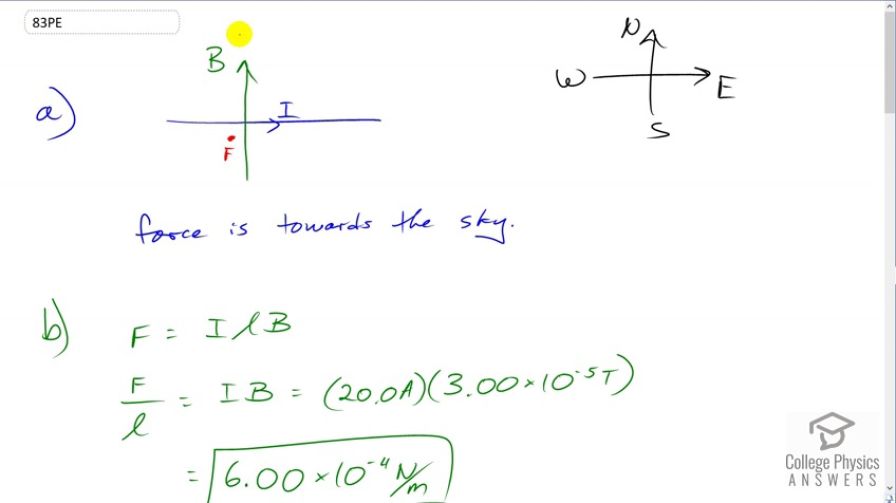 83PE
N
W E
S
a)
B
I
F
force is towards the sky.
b)
F = I l B
F/l = I B = (20.0A)(3.00×10⁻⁵T)
= 6.00×10⁻⁴ N/m
College Physics
ANSWERS